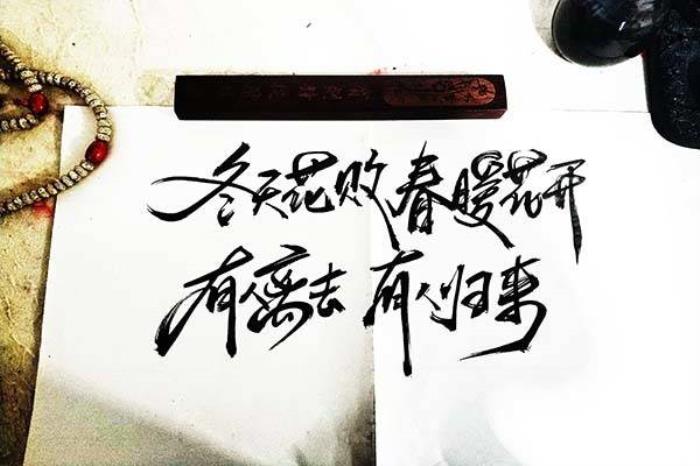 冬天花败 春暖花开
有人离去 有人归来